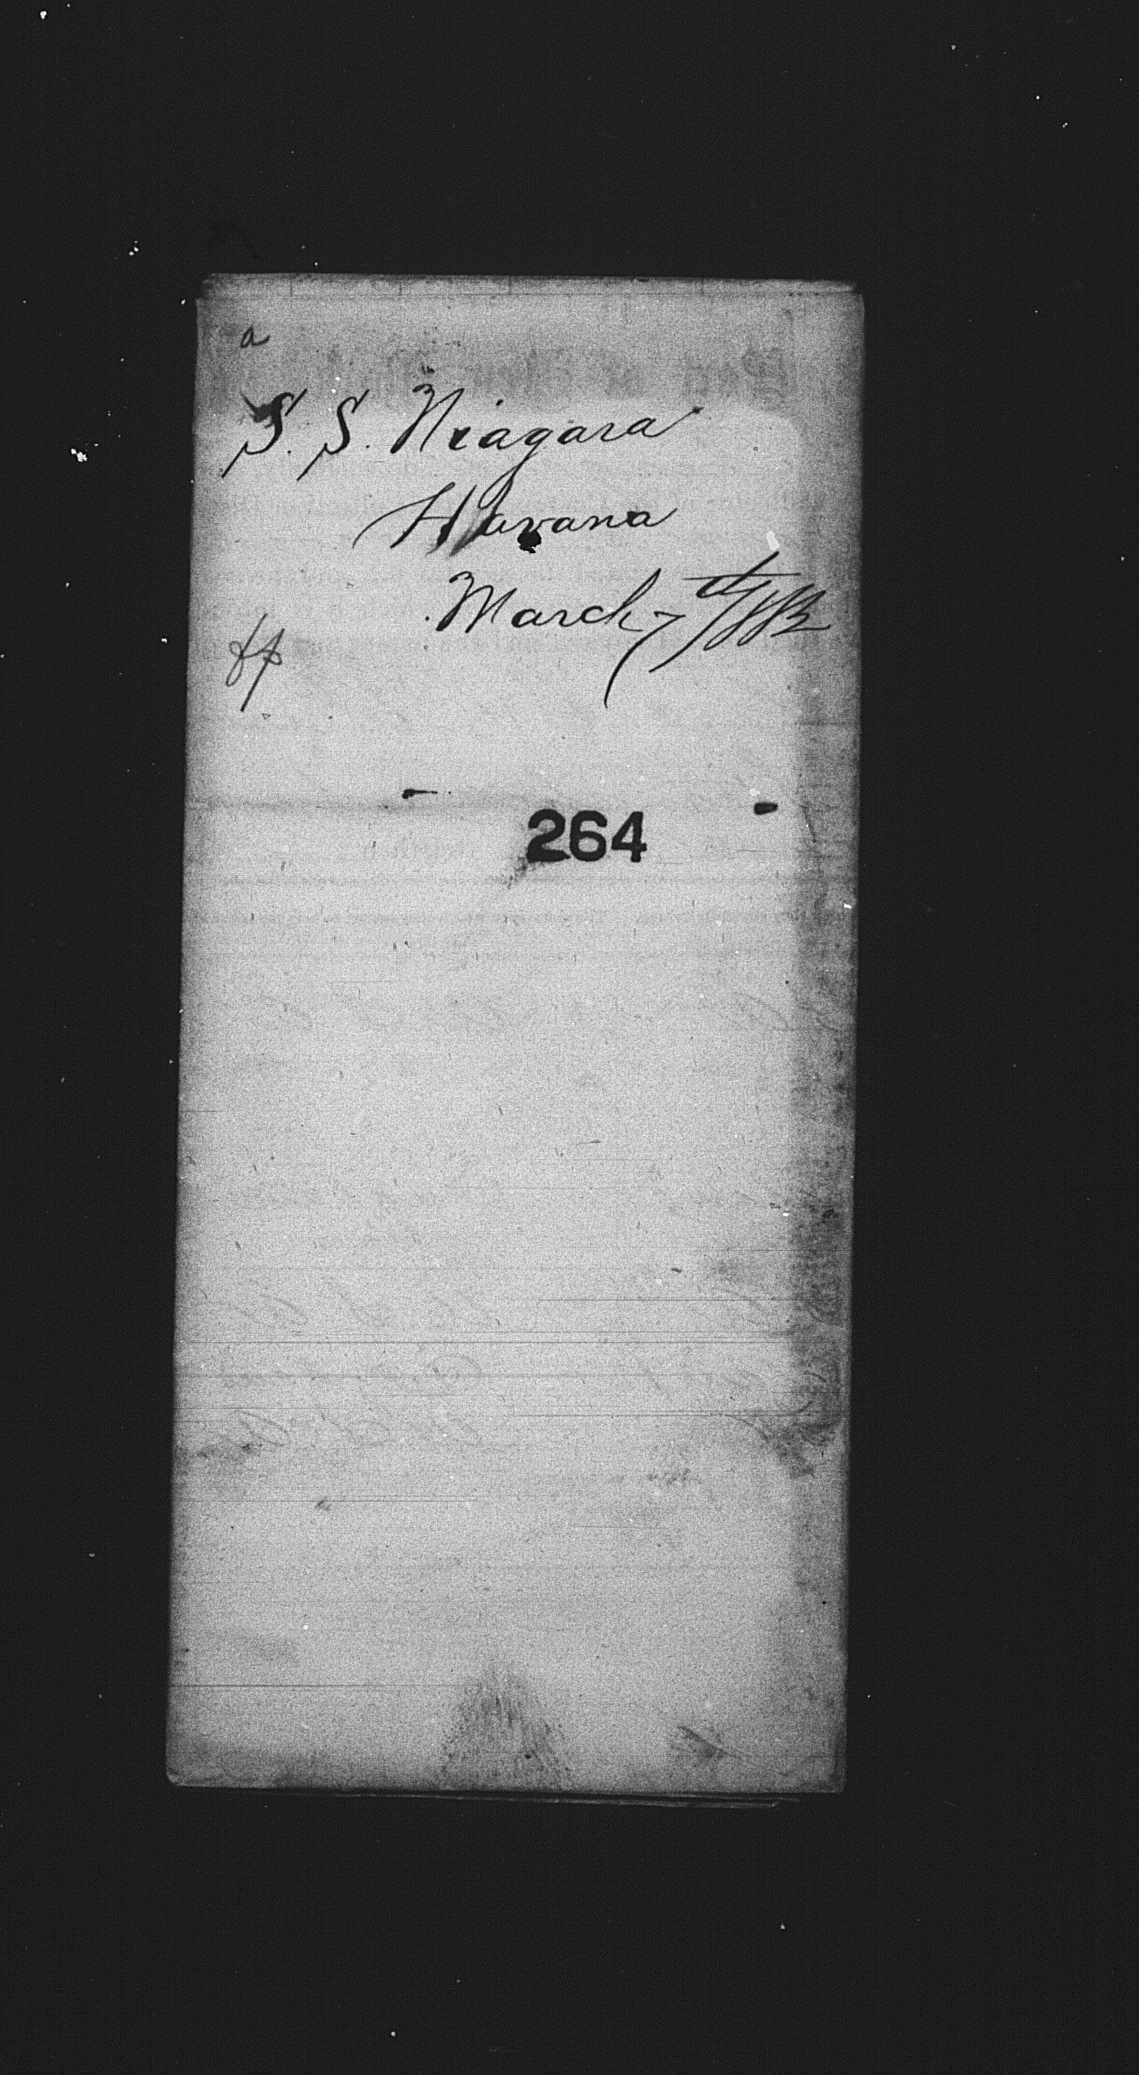 a
S. S. Niagara
Havana
March 7th/82
264